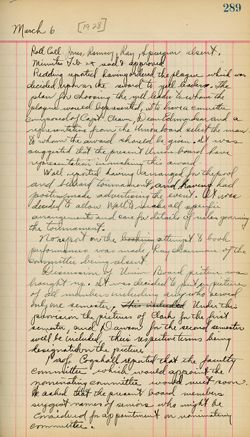 289
March 6 [1928]
Roll Call Jones, Ramsey, Ray, Spurgin absent.
Minutes read & approved
Redding reported having ordered the plaque which was
decided upon as the award to yell leaders. The
plan for choosing the yell leader to whom the
plaque would be presented, is to have a committee
composed of Capt. Cleam, Dean Edmondson and a
representative from the Union board select the man
to whom the award should be given. It was
suggested that the present Union board have
representation in making this award.
Wall reported having arranged for the pool
and billiard tournament, and having had
posters made advertising the event. It was
decided to allow Wall to make all special
arrangements and care for details of rules governing
the tournament.
No report on the attempt to book
performance was made Ray chairman of the
committee being absent.
Discussion of Union Board picture was
brought up. It was decided to put on picture
of all members including any who served
only one semester, Under this
provision the pictures of Clark for the first
semester and Dawson for the second semester
will be included, their respective terms being
designated on the picture.
Prof. Cogshall reported that the faculty
committee which would appoint the
nominating committee would meet soon.
He asked that the present board members
suggest names of seniors who might be
considered for appointment on nominating
committee.